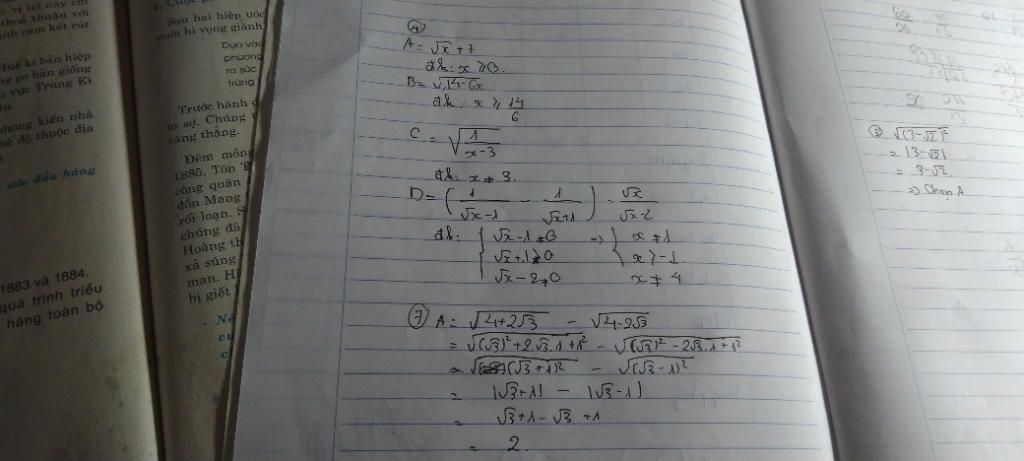 c vị trí này em
thoả thuận với
nh cam kết rút
Huế kí bản hiệp
ng cơ bản giống
vực Trung Kì
phong kiến nhà
hế độ thuộc địa
ước đầu hàng
1883 và 1884.
quá trình triều
hàng toàn bộ
Sau hai hiệp ước
nuôi hi vọng giành
Dựa vào
phong
ra sức
trừng
Trước hành đ
lo sợ. Chúng t
căng thẳng.
Đêm mồng
1885, Tôn T
công quân
đồn Mang
rối loạn. S
chúng đã
Hoàng th
xả súng
man. H
bị giết
④
A = √x + 7
đk: x ⩾ 0.
B = √14-6x
đk: x ⩾ 14/6
C = √(1/(x-3))
đk: x ≠ 3.
D = (1/(√x-1) - 1/(√x+1)) · √x/(√x-2)
đk: { √x-1 ≠ 0 => { x ≠ 1
√x+1 ⩾ 0 x ⩾ -1
√x-2 ≠ 0 x ≠ 4
⑦ A = √(4+2√3) - √(4-2√3)
= √((√3)²+2√3.1+1²) - √((√3)²-2√3.1+1²)
= √(√3+1)² - √(√3-1)²
= |√3+1| - |√3-1|
= √3+1-√3+1
= 2.
③ √(3-√2)²
= |3-√2|
= 3-√2.
=> Chọn A